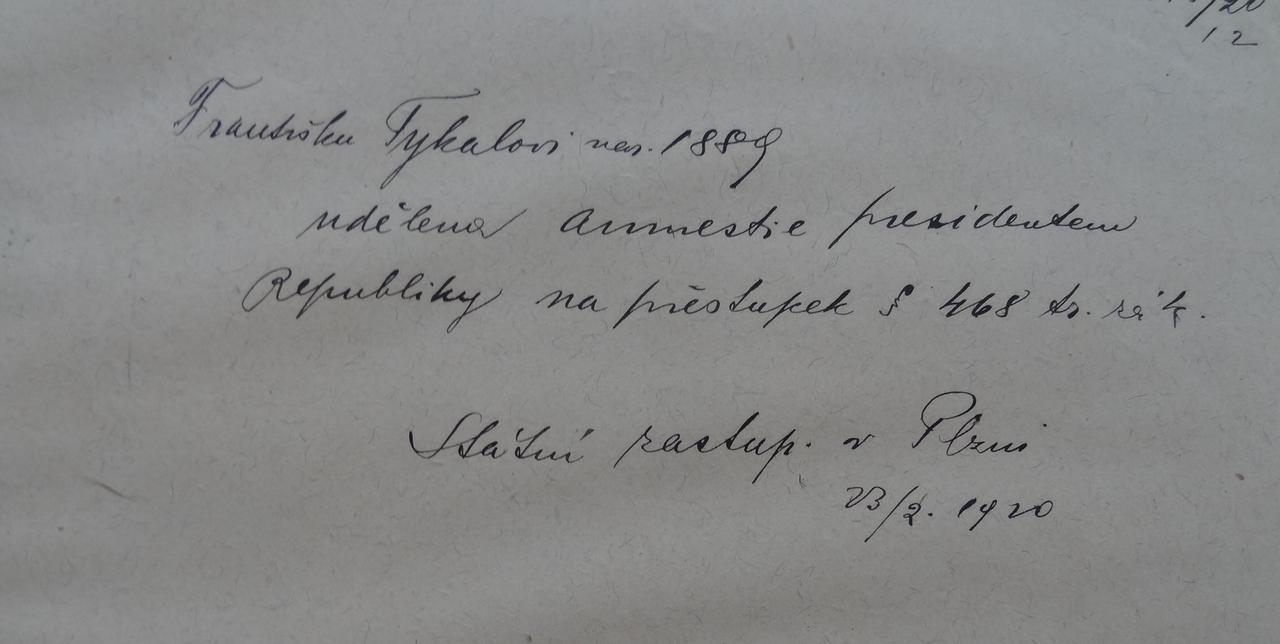 /20
12
Františku Tykalovi nar. 1889
udělena amnestie presidentem
Republiky na přestupek § 468 tr. zák.
Státní zastup. v Plzni
23/2. 1920